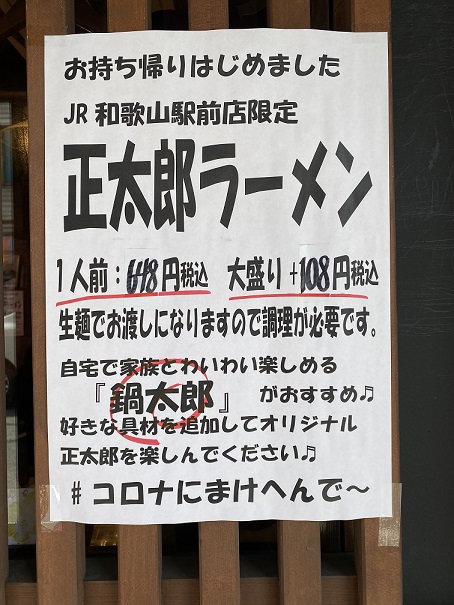 お持ち帰りはじめました
JR 和歌山駅前店限定
正太郎ラーメン
1人前:648円税込 大盛り+108円税込
生麺でお渡しになりますので調理が必要です。
自宅で家族とわいわい楽しめる
『鍋太郎』 がおすすめ♫
好きな具材を追加してオリジナル
正太郎を楽しんでください♫
#コロナにまけへんで～